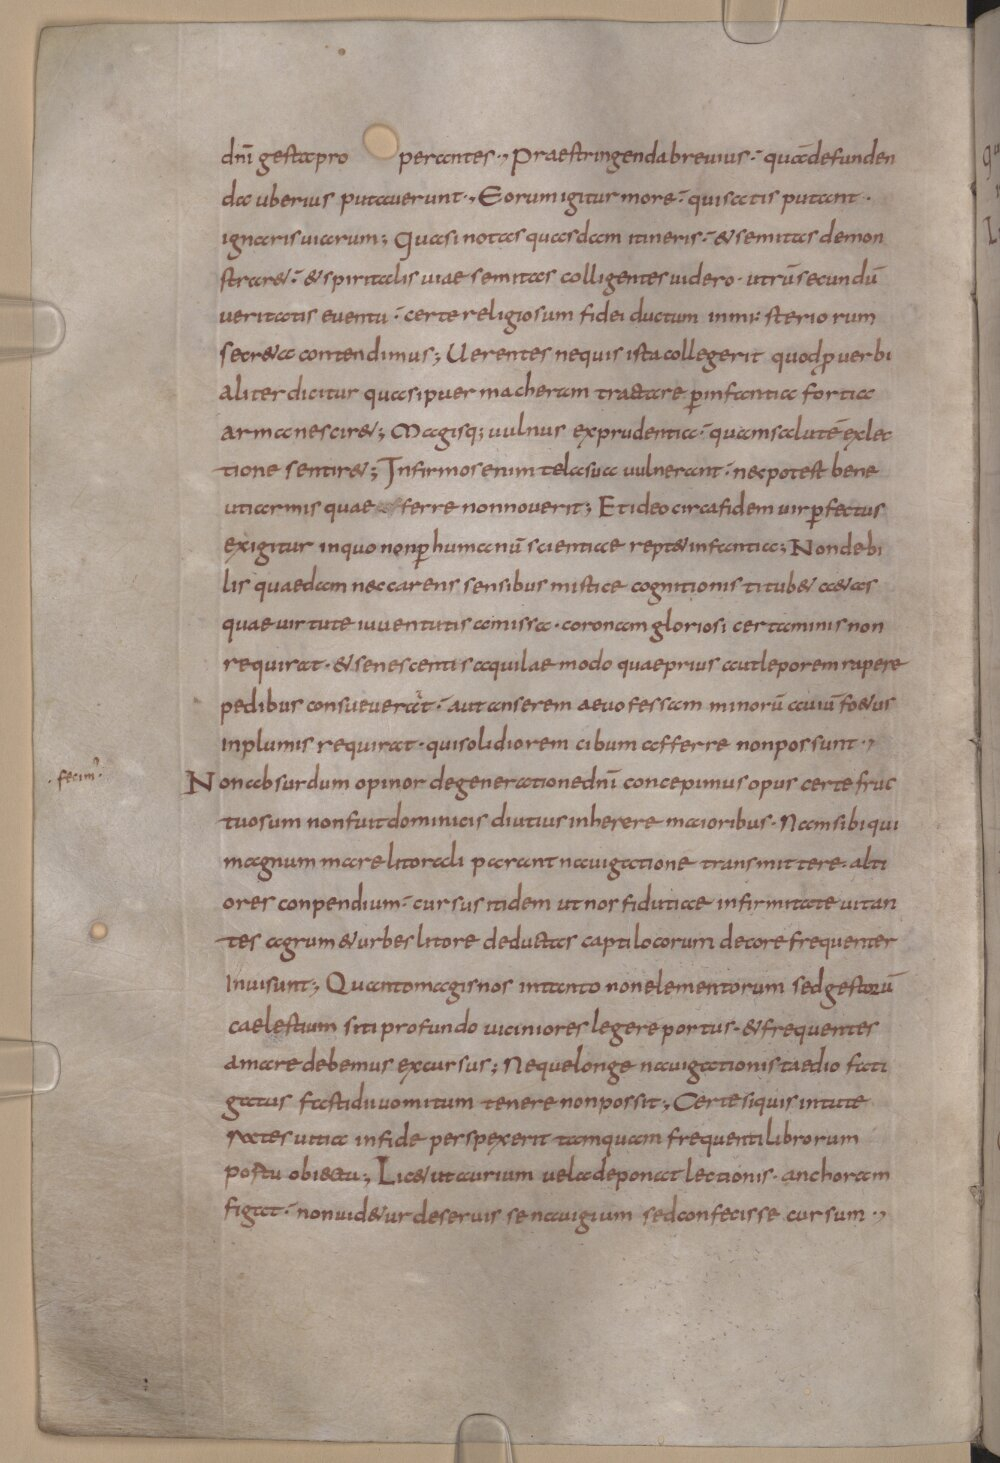 dnī gesta pro perantes ., Praestringenda brevius : quā defunden
da uberius putaverunt ., Eorum igitur more : qui satis putant .
ignaris viarum ; Quasi notas quasdam itineris : & semitas demon
strar& : & spiritalis viae semitas colligentes videro . utrū secundū
veritatis eventu : certe religiosum fidei ductum in misteriorum
secr&a contendimus ; Verentes nequis ista collegerit quod ꝑ verbi
aliter dicitur quasi puer macheram tractare ꝑ infantia fortia
arma nescir& ; Magisq; vulnus exprudentia : quam salutē ex lec
tione sentir& ; Infirmos enim tela sua vulnerant : nec potest bene
uti armis quae afferre non noverit ; Et ideo circa fidem vir ꝑfectus
exigitur in quo non ꝑ humanū scientiae rept& infantia ; Non debi
lis quaedam nec carens sensibus mistice cognitionis titub& a&as
quae virtute iuventutis amissa . coronam gloriosi certaminis non
requirat . & senescentis aquilae modo quae prius aut leporem rapere
pedibus consueverat : aut anserem aevo fessam minorū aviū fo&us
inplumis requirat . qui solidiorem cibum afferre non possunt .,
. fecim' :
Non absurdum opinor de generatione dnī concepimus opus certe fruc
tuosum non fuit dominicis diutius inherere maioribus . Nam sibi qui
magnum mare litorali parant navigatione transmittere . alti
ores conpendium : cursus itidem ut nos fidutiae infirmitate vitan
tes agrum & urbes litore deductas capti locorum decore frequenter
Invisunt ; Quanto magis nos in tanto non elementorum sed gestorū
caelestium siti profundo viciniores legere portus . & frequentes
amare debemus excursus ; Neque longe navigationis taedio fati
gatus fastidii vomitum tenere non possit ; Certe si quis in tute
nates vitia in fide perspexerit tamquam frequenti librorum
postu obiectu ; Lic& ut avrium vela deponat lectionis . anchoram
figat : non vid&ur deseruisse navigium sed confecisse cursum .,